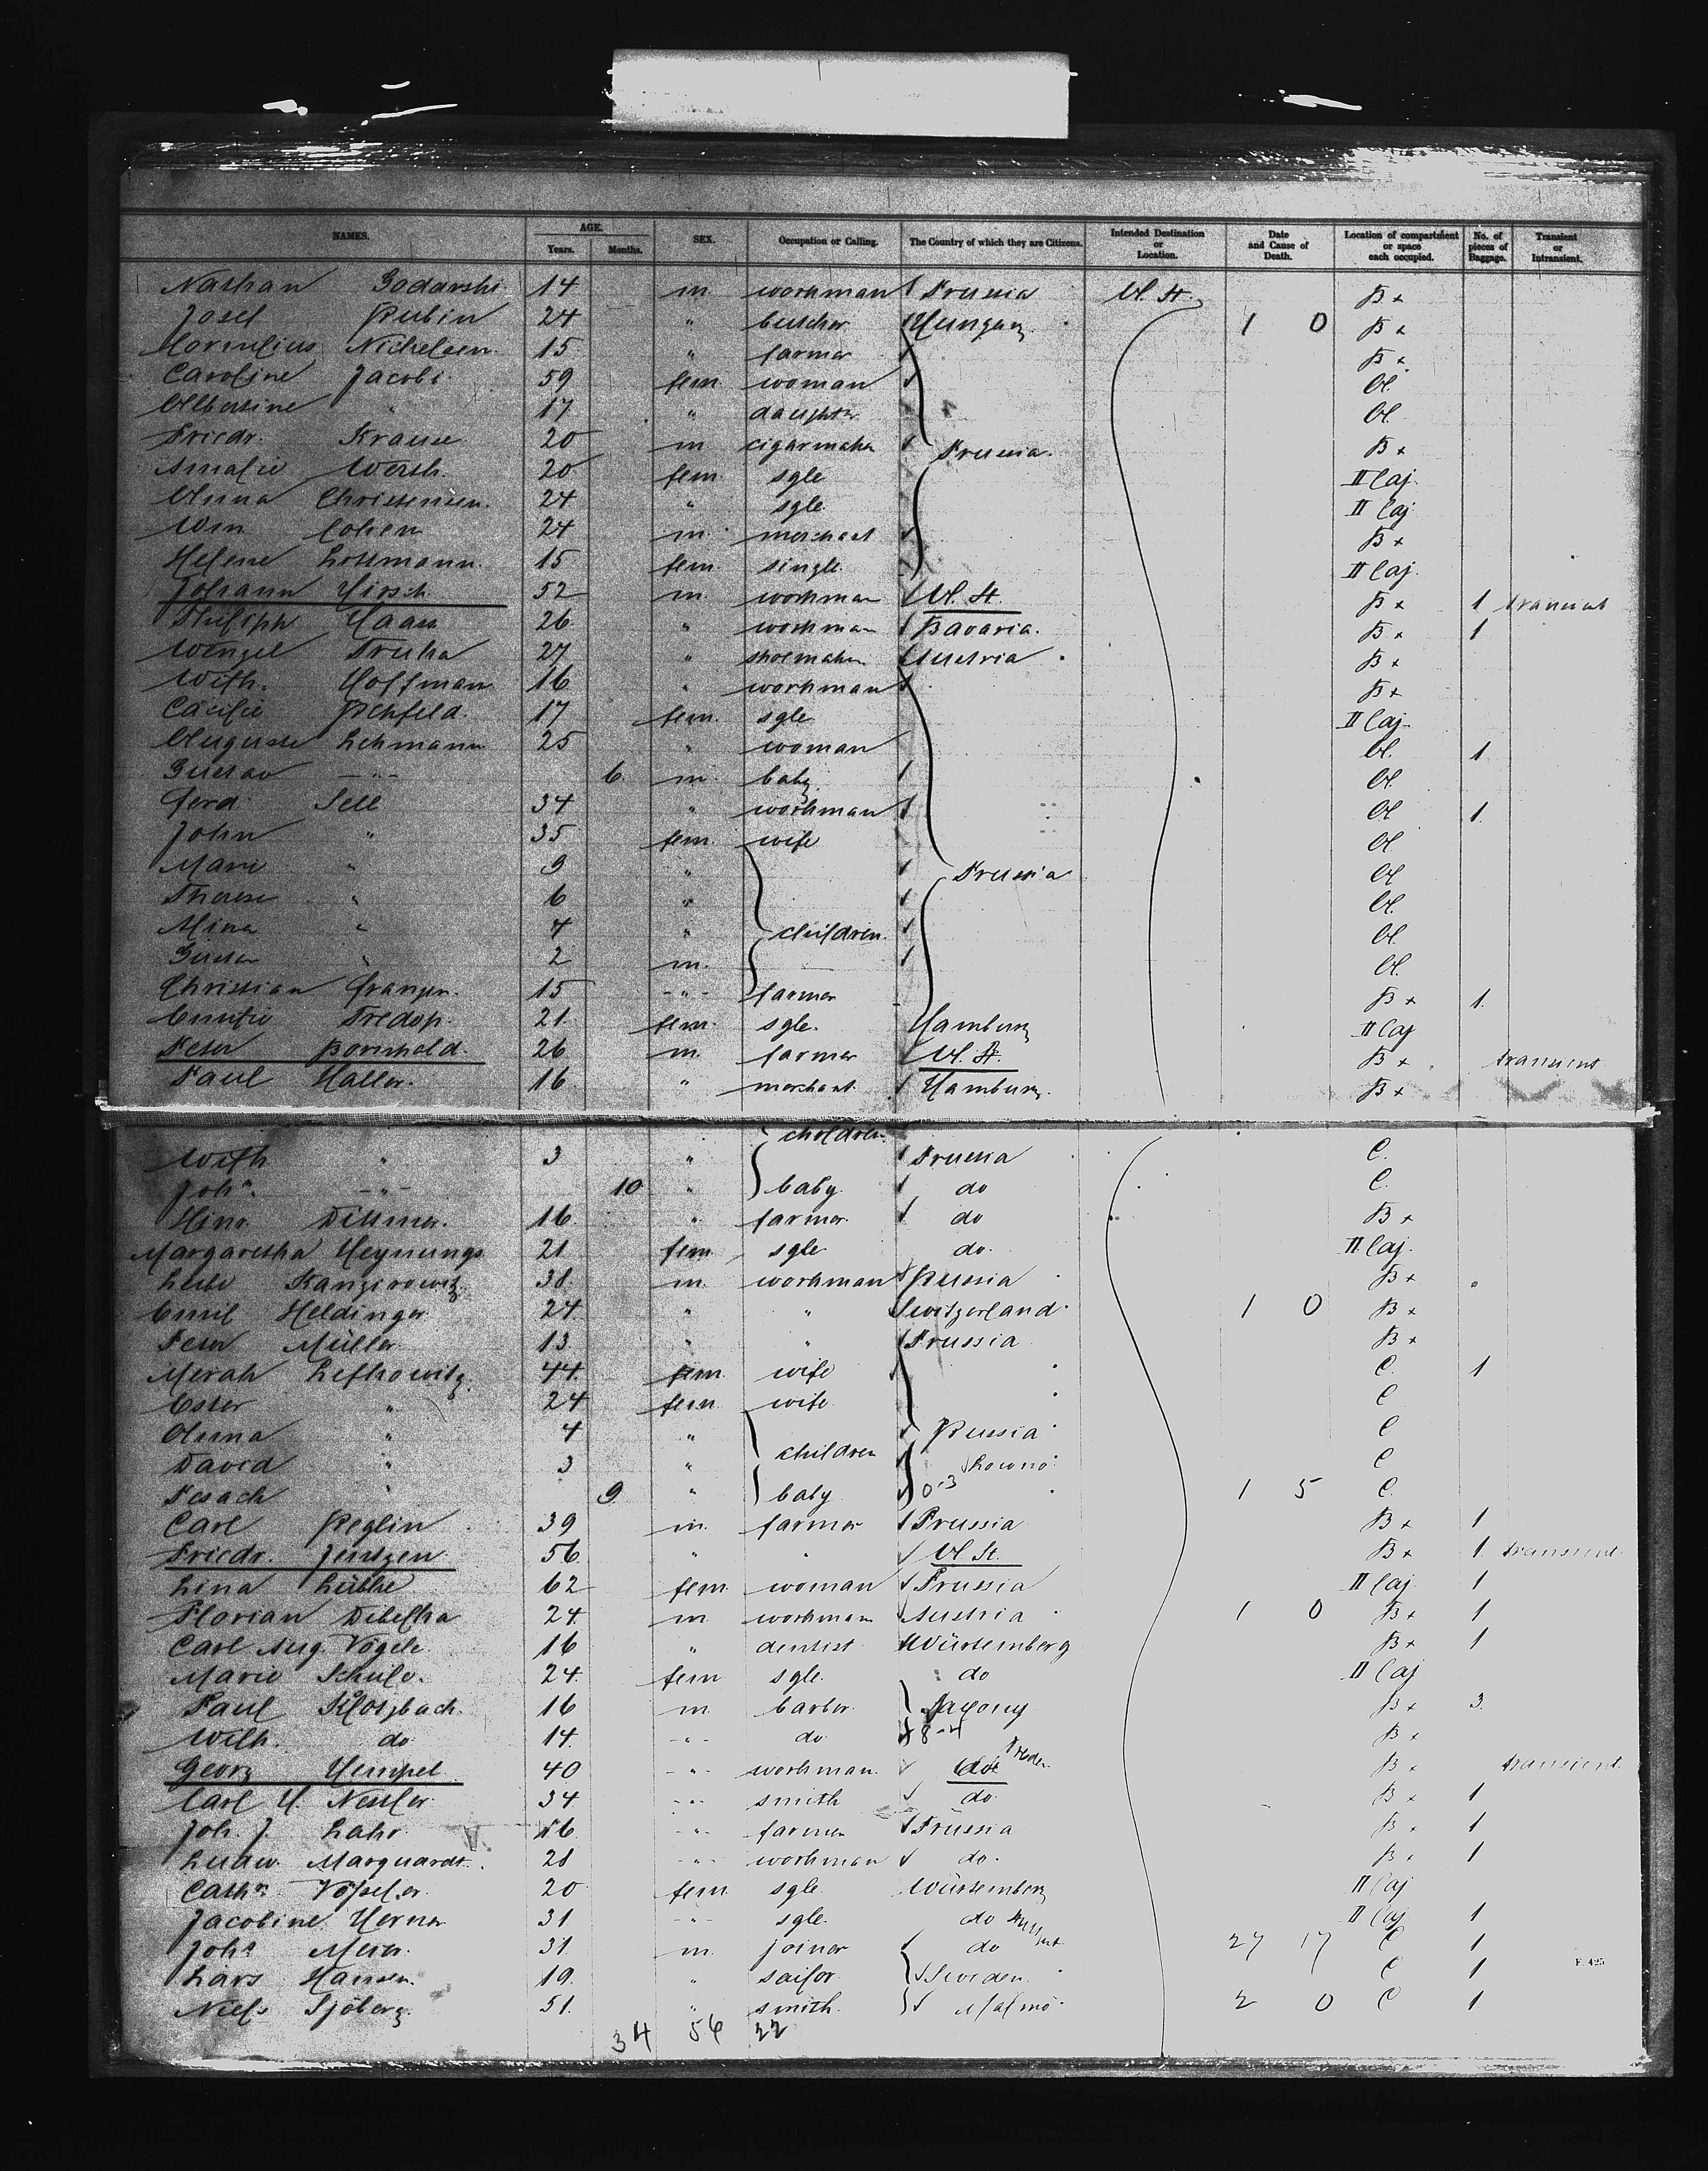 NAMES. AGE. Years. Months. SEX. Occupation or Calling. The Country of which they are Citizens. Intended Destination or Location. Date and Cause of Death. Location of compartment or space each occupied. No. of pieces of Baggage. Transient or Intransient.
Nathan Godarski 14 m workman Prussia U. St. B x
Josef Rubin 24 " butcher Hungary 1 0 B x
Cornelius Nickelsen 15 " farmer B x
Caroline Jacobi 59 fem woman A.
Albertine " 17 " daughter A.
Friedr. Krause 20 m cigarmaker Prussia. B x
Amalie Wersh. 20 fem sgle II Caj.
Anna Christensen. 24 " sgle. II Caj
Wm Cohen 24 m merchant B x
Helene Lottmann. 15 fem. single. II Caj.
Johann Hirsch 52 m workman U. St. B x 1 transient
Philiph Haass 26 " workman Bavaria. B x 1
Wenzel Truka 27 " shoemaker Austria B x
Wilh. Hoffman 16 " workman B x
Cäcilie Rehfeld. 17 fem. sgle II Caj.
Auguste Lehmann 25 " woman A. 1
Gustav -"- 6. m baby A.
Ferd. Sell 34 " workman A 1
John " 35 fem. wife A.
Marie " 9 " Prussia A
Therese " 6 " A.
Mina " 4 " children. A.
Gustav " 2 m. A.
Christian Franzen. 15 -"- farmer B x 1.
Emilie Tredop. 21 fem. sgle. Hamburg II Caj
Peter Bornhold. 26 m. farmer U. St. B x transient
Paul Haller. 16 " merchant Hamburg. B x
children
Wilh " 3 " Prussia C.
Joh.n -"- 10 " baby do C.
Hinr. Dittmer. 16 " farmer. do B x
Margaretha Heynungs 21 fem sgle do. II Caj.
Leibe Kanzirowitz 38. m. workman Russia B x
Emil Heldinger 24. " " Switzerland 1 0 B x
Peter Müller 13. " " Prussia B x
Merah Lefkowitz. 44. fem. wife C. 1
Ester " 24 fem. wife C
Anna " 4 " Russia C
David " 3 " children Kowno C
Pesach " 9. " baby 0-3 1 5 C.
Carl Reglin 39 m. farmer Prussia B x 1
Friedr. Jentzen. 56. " " U. St. B x 1. transient
Lina Lübke 62 fem. woman Prussia II Caj. 1
Florian Dibelka 24. m workman Austria 1 0 B x 1
Carl Aug. Vögele 16 " dentist Würtemberg B x 1
Marie Schule. 24. fem sgle. do II Caj
Paul Klotzbach. 16 m. barber. Saxony B x 3.
Wilh. do 14. -"- do 8-4 B x
Georg Hempel 40 -"- workman. do B x transient
Carl H. Nessler 34 -"- smith do. B x 1
Joh. J. Lahr. 16 -"- farmer Prussia B x 1
Ludw. Marquardt. 28 -"- workman do. B x 1
Cath.n Vosseler. 20 fem sgle Würtemberg II Caj
Jacobine Herner 31 -"- sgle. do II Caj 1
Joh.s Meier. 31. m. joiner do 27 17 C 1
Lars Hansen. 19. " sailor Sweden. C 1
Niels Sjöberg. 51. " smith. Malmö 2 0 C 1
34 56 22
F. 425